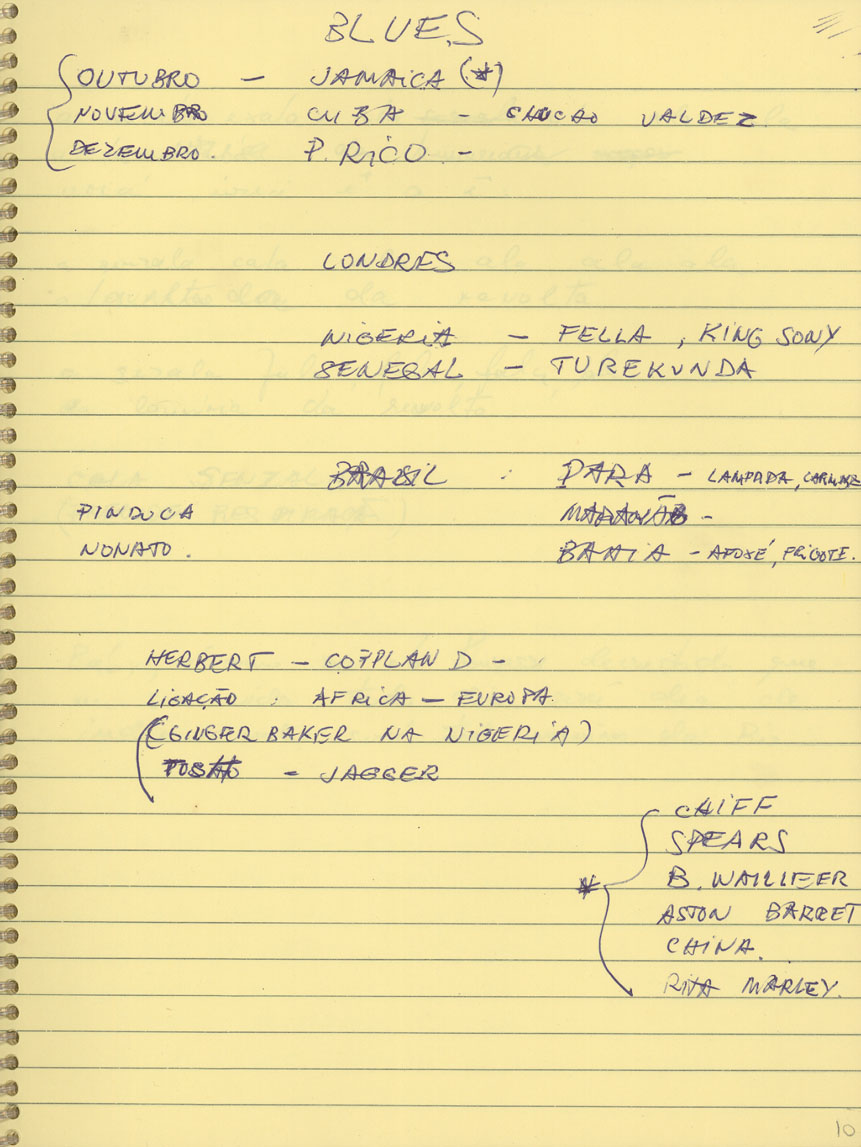 BLUES
OUTUBRO — JAMAICA (*)
NOVEMBRO CUBA - CHUCAO VALDEZ
DEZEMBRO. P. RICO -
LONDRES
NIGERIA - FELLA, KING SONY
SENEGAL - TUREKUNDA
BRASIL : PARA - LAMPADA,
PINDUCA -
NONATO. BAHIA - AFOXÉ, FRICOTE.
HERBERT - COPPLAND -
LIGAÇÃO: AFRICA - EUROPA
(GINGER BAKER NA NIGERIA)
TOSH - JAGGER
CHIFF
SPEARS
* B. WAILLEER
ASTON BARRET
CHINA.
RITA MARLEY.
10